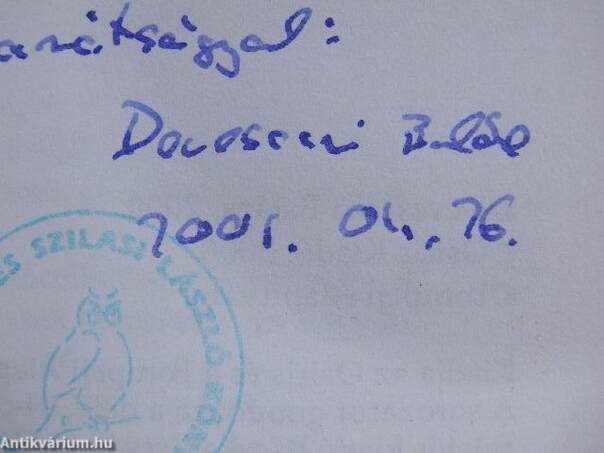 arátsággal:
Devescovi Balázs
2005. 04. 26.
ES SZILASI LÁSZLÓ KÖN
Antikvárium.hu